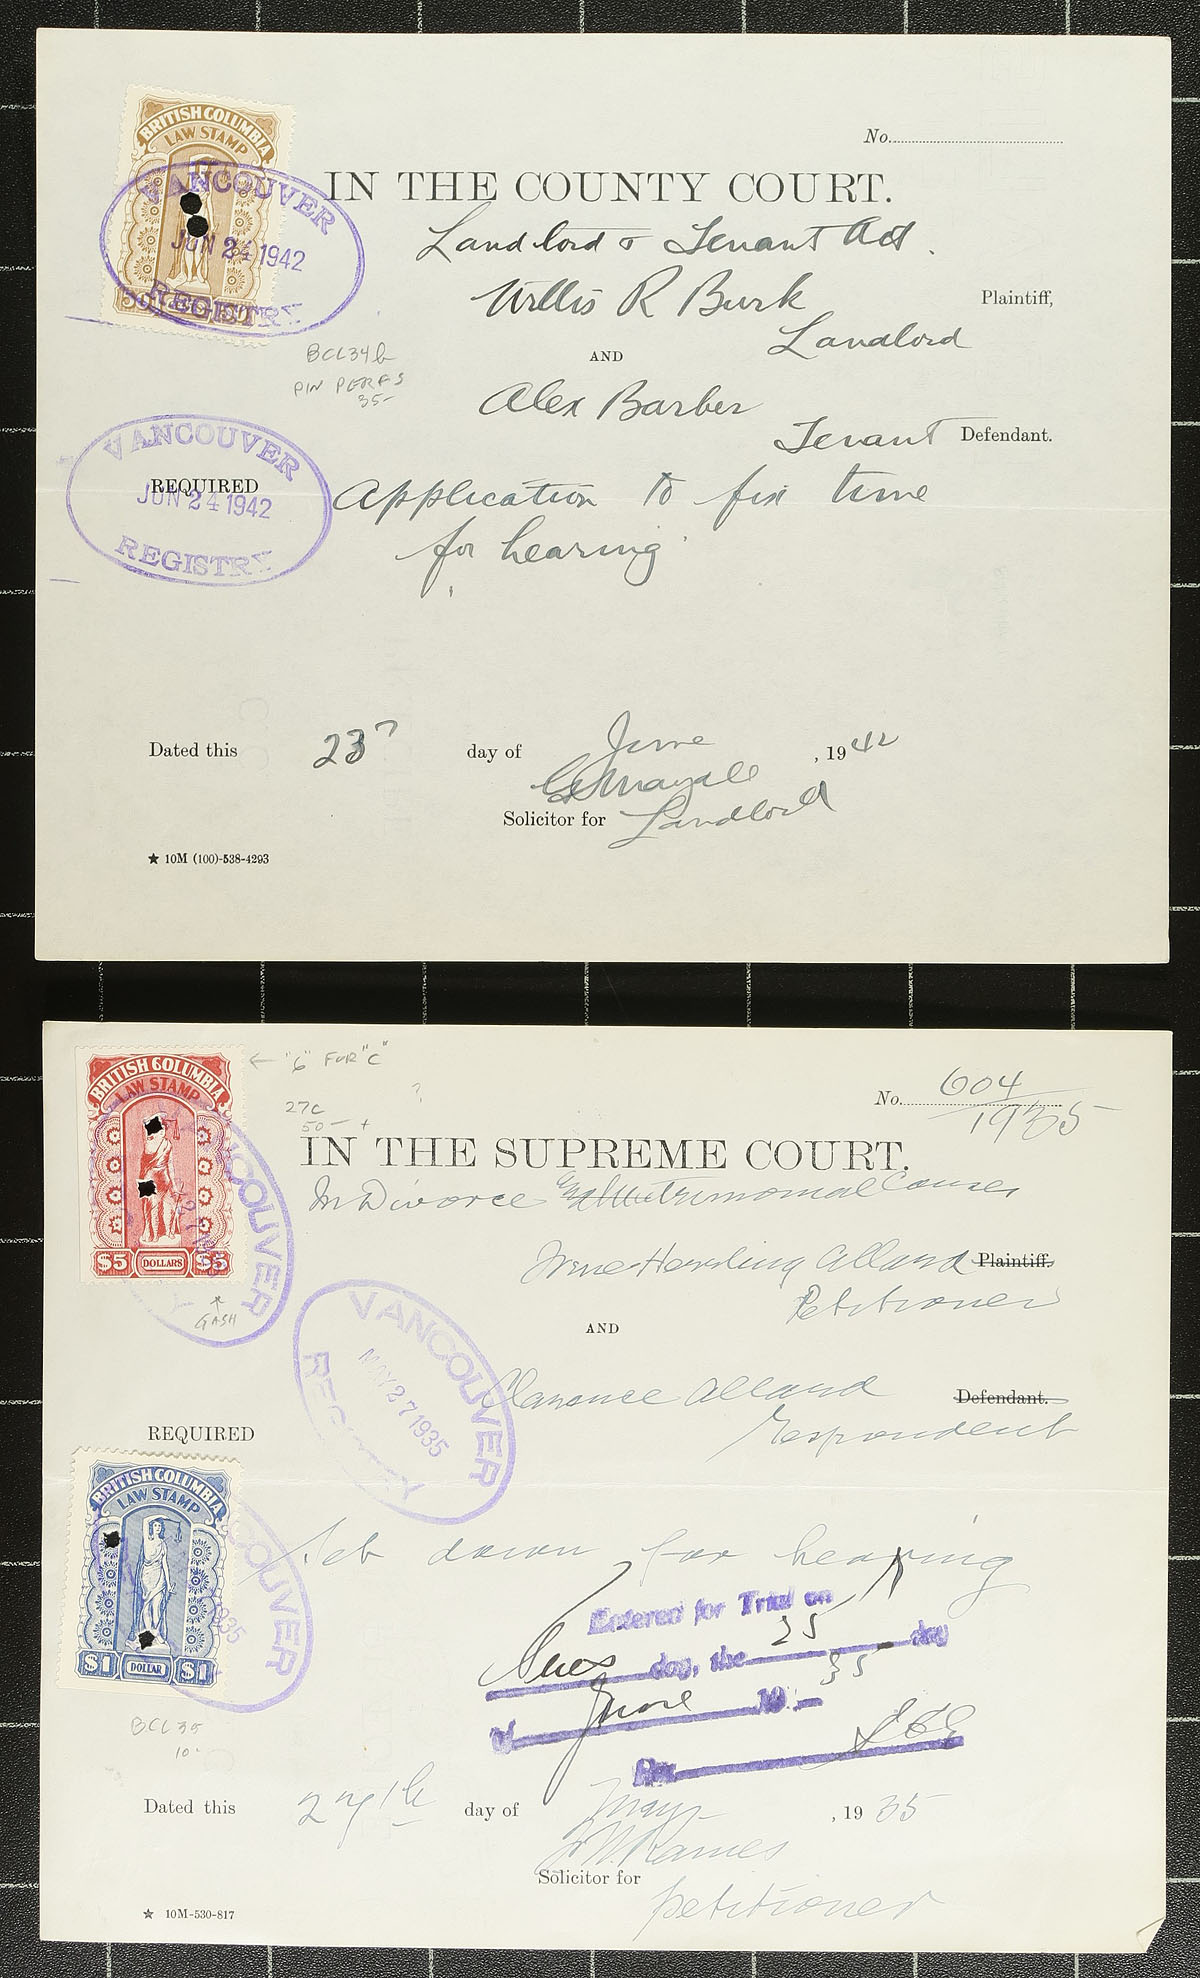 BRITISH COLUMBIA
LAW STAMP
VANCOUVER
JUN 24 1942
REGISTRY
No.
IN THE COUNTY COURT.
Landlord & Tenant Act.
Willis R Burk
Plaintiff,
Landlord
AND
BCL34b
PIN PERFS
35-
Alex Barber
Tenant Defendant.
VANCOUVER
JUN 24 1942
REGISTRY
REQUIRED
Application to fix time
for hearing
Dated this 23 day of June, 1942
Solicitor for Landlord
★ 10M (100)-538-4293
BRITISH GOLUMBIA
LAW STAMP
$5 DOLLARS $5
← "G" FOR "C"
27c
50- +
?
No. 604/1935
IN THE SUPREME COURT.
In Divorce & Matrimonial Causes
Allard Plaintiff.
Petitioner
GASH
VANCOUVER
AND
VANCOUVER
MAY 27 1935
REGISTRY
Clarence Allard
Defendant.
Respondent
REQUIRED
BRITISH COLUMBIA
LAW STAMP
$1 DOLLAR $1
COUVER
1935
Set down for hearing
Entered for Trial on
Tues day, the 25 day
of June 19 35
Per
BCL35
10-
Dated this 27th day of May, 1935
Solicitor for
petitioner
★ 10M-530-817